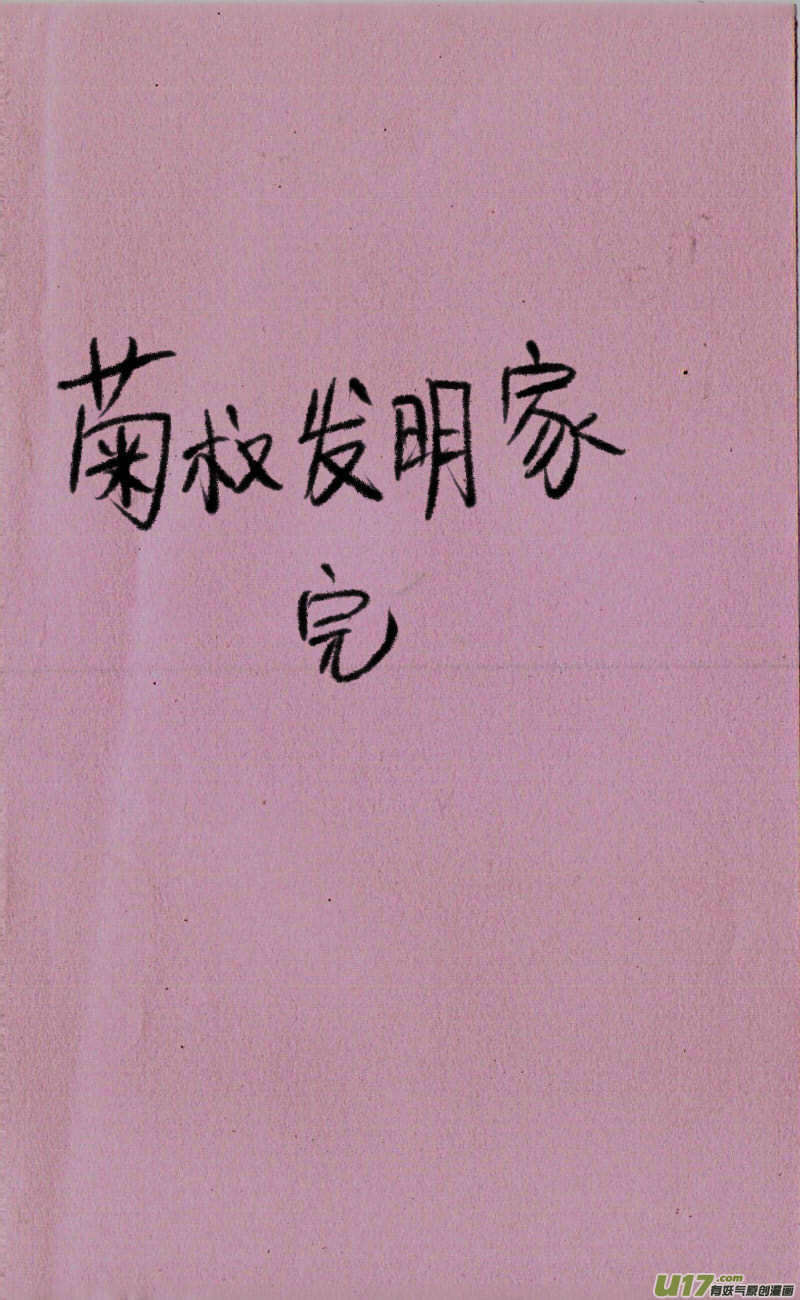 菊叔发明家
完
U17.com
有妖气原创漫画